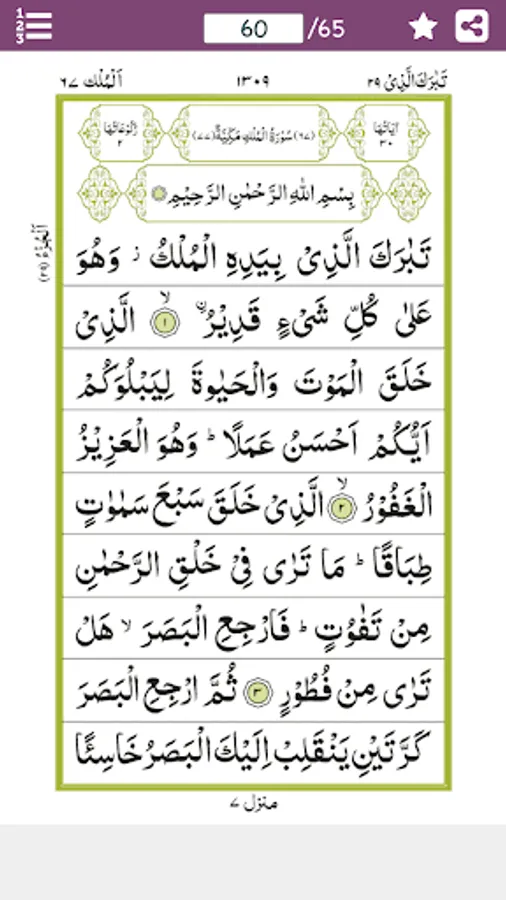 60 /65
تَبٰرَكَ الَّذِىْ ٢٩ ١٣٠٩ اَلْمُلْك ٦٧
اٰيَاتُهَا ٣٠ (٦٧) سُوْرَةُ الْمُلْكِ مَكِّيَّةٌ (٧٧) رُكُوْعَاتُهَا ٢
بِسْمِ اللّٰهِ الرَّحْمٰنِ الرَّحِيْمِ
اَلْجُزْءُ (٢٩)
تَبٰرَكَ الَّذِىْ بِيَدِهِ الْمُلْكُ ز وَهُوَ
عَلٰى كُلِّ شَىْءٍ قَدِيْرُ ۨ ۙ ١ الَّذِىْ
خَلَقَ الْمَوْتَ وَالْحَيٰوةَ لِيَبْلُوَكُمْ
اَيُّكُمْ اَحْسَنُ عَمَلًا ؕ وَهُوَ الْعَزِيْزُ
الْغَفُوْرُ ۙ ٢ الَّذِىْ خَلَقَ سَبْعَ سَمٰوٰتٍ
طِبَاقًا ؕ مَا تَرٰى فِىْ خَلْقِ الرَّحْمٰنِ
مِنْ تَفٰوُتٍ ؕ فَارْجِعِ الْبَصَرَ ۙ هَلْ
تَرٰى مِنْ فُطُوْرٍ ٣ ثُمَّ ارْجِعِ الْبَصَرَ
كَرَّتَيْنِ يَنْقَلِبْ اِلَيْكَ الْبَصَرُ خَاسِئًا
منزل ٧